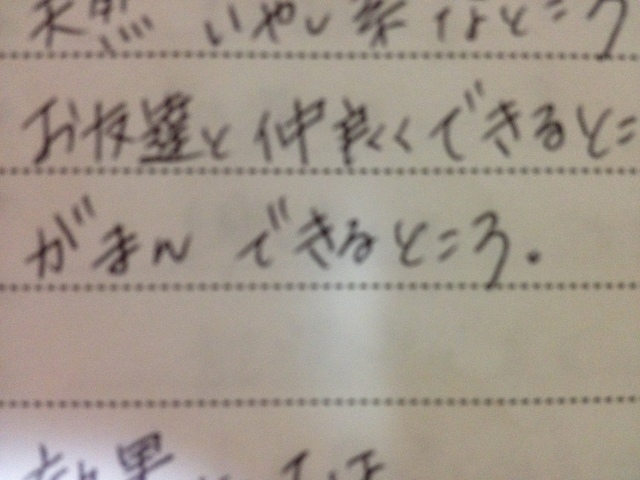 天然 いやし系 なところ
お友達と 仲良くできると
がまん できるところ。